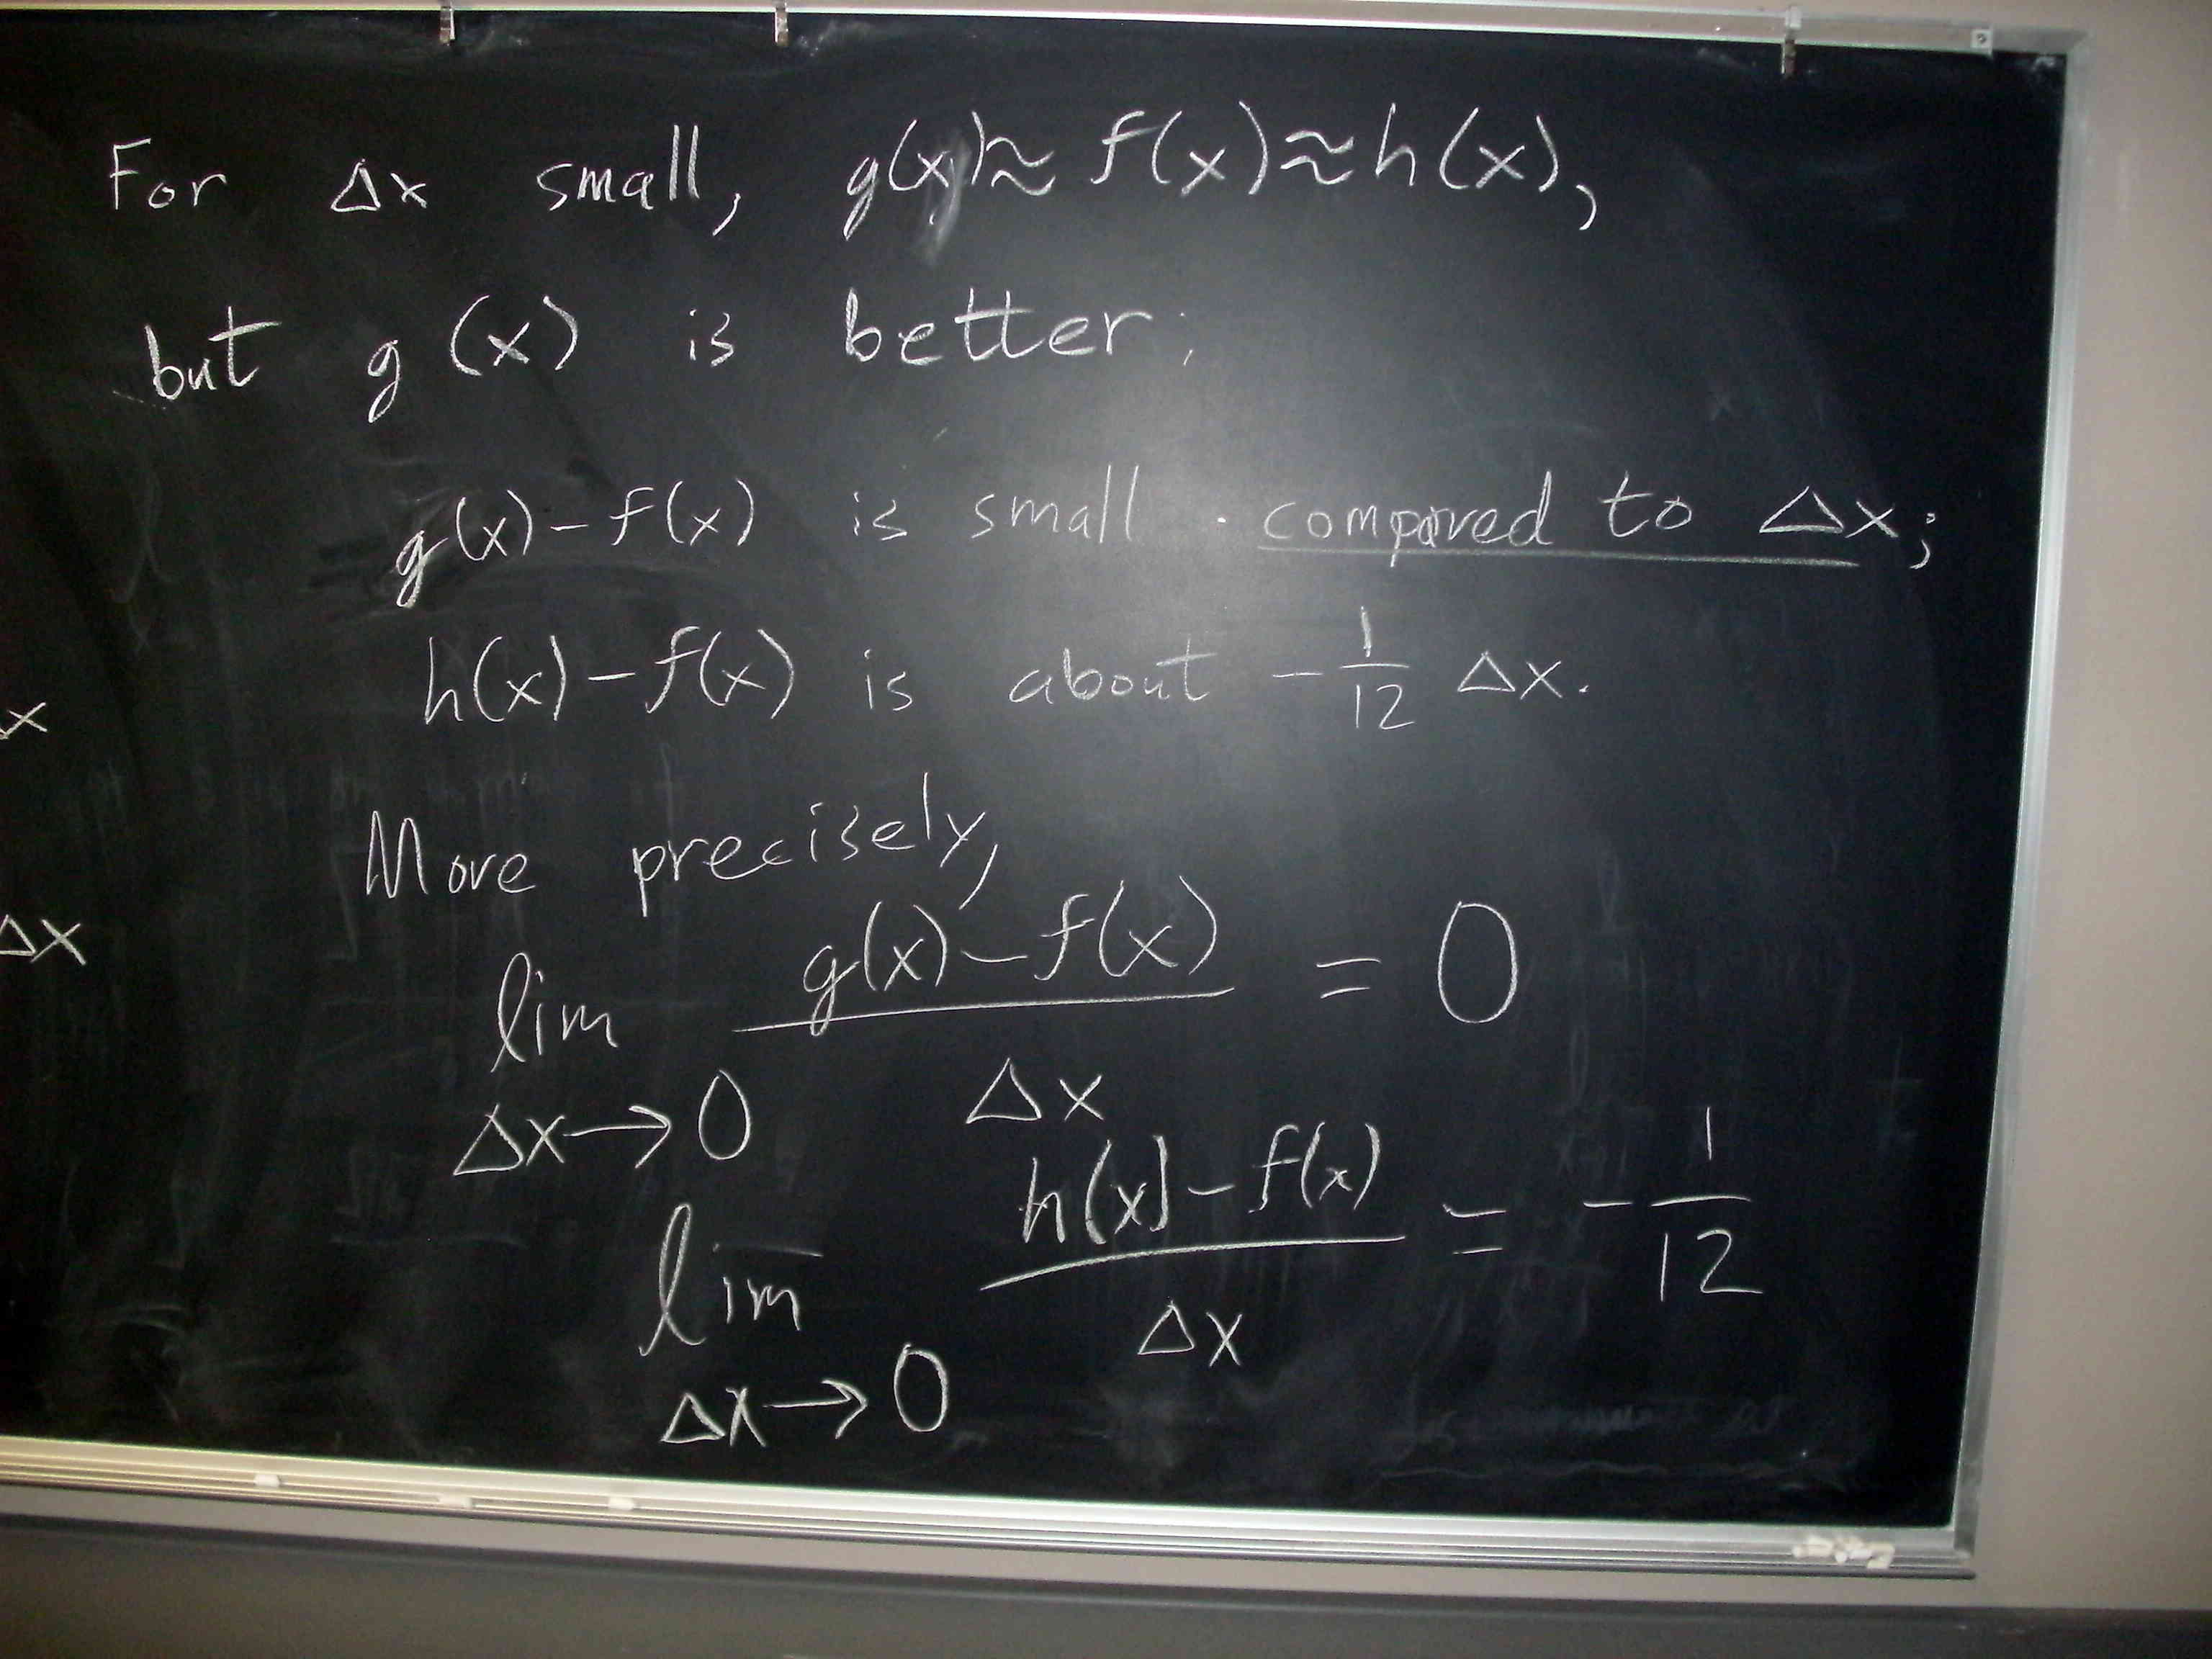 For Δx small, g(x) ≈ f(x) ≈ h(x),
but g(x) is better:
g(x) – f(x) is small compared to Δx;
h(x) – f(x) is about – 1/12 Δx.
x
More precisely,
Δx
lim Δx→0 (g(x) – f(x))/Δx = 0
lim Δx→0 (h(x) – f(x))/Δx = – 1/12